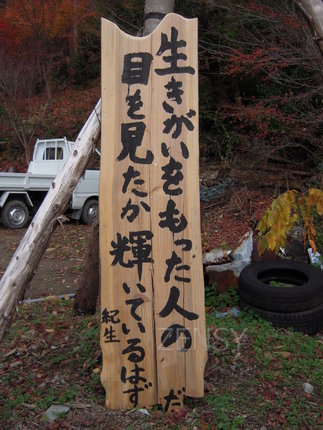 生きがいをもった人の
目を見たか輝いているはずだ
紀生
ZENSY